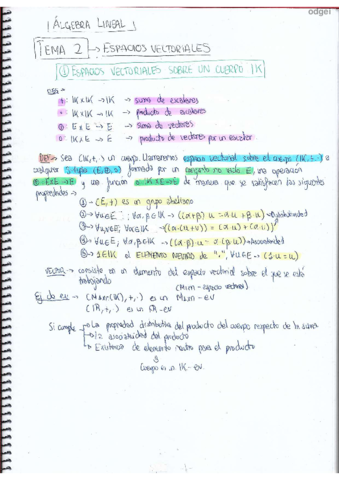 odgei
| ÁLGEBRA LINEAL |
TEMA 2 → ESPACIOS VECTORIALES
① ESPACIOS VECTORIALES SOBRE UN CUERPO IK
+ IK x IK → IK → suma de escalares
· IK x IK → IK → producto de escalares
⊕ E x E → E → suma de vectores
⊙ IK x E → E → producto de vectores por un escalar
DEF → Sea (IK,+,·) un cuerpo. Llamaremos espacio vectorial sobre el cuerpo (IK,+,·) a
cualquier tripla (E,⊕,⊙) formada por un conjunto no vacío E, una operación
⊕ E x E → E y una función ⊙ IK x E → E de manera que se satisfacen las siguientes
propiedades →
① - (E,+) es un grupo abeliano
② - ∀u∈E ; ∀α,β∈IK → ((α+β)·u = α·u + β·u) →
③ - ∀u,v∈E, ∀α∈IK →
④ - ∀u∈E, ∀α,β∈IK →
⑤ - 1∈IK el ELEMENTO NEUTRO de "·", ∀u∈E → (1·u = u)
VECTOR → consiste en un elemento del espacio vectorial sobre el que se está
trabajando
(espacio vectorial)
Ej de e.v → (IK), +, ·) es un
(IR, +, ·) es un IR - ev
Si cumple → La propiedad distributiva del producto del cuerpo respecto de la suma
asociatividad del producto
Existencia de elemento neutro para el producto
Cuerpo es a IK - ev.